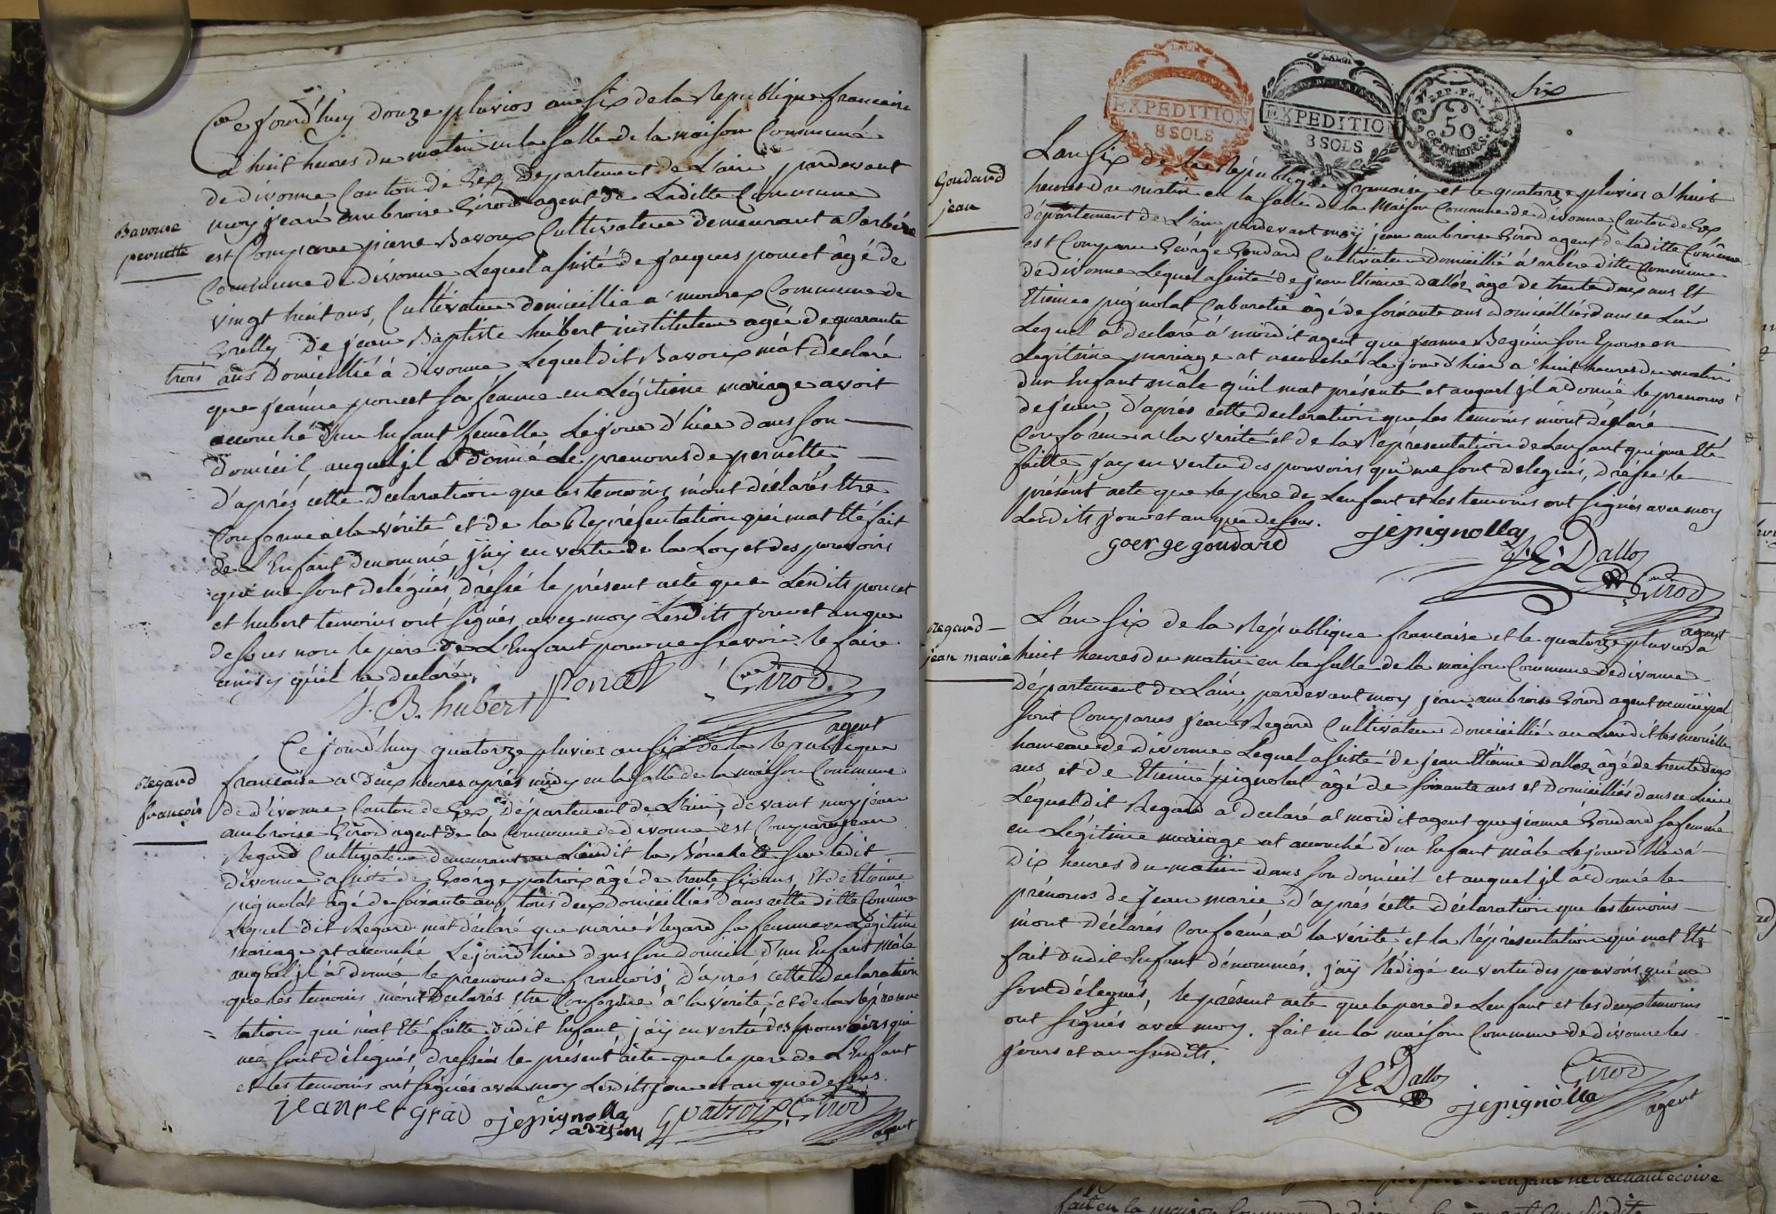 Ce jourd'huy douze pluvios an six de la Republique francaise
a huit heures du matin en la salle de la maison Commune
de divonne Canton de Gex Departement de L'ain pardevant
moy jean ambroise Girod agent de Laditte Commune
Bavoux
pernette
est Comparu pierre Bavoux Cultivateur demeurant a arbère
Commune de divonne Lequel assisté de jacques poncet âgé de
vingt huit ans, Cultivateur domicillié a mourex Commune de
Grilly De jean Baptiste hubert instituteur agée de quarante
trois ans Domicillié à divonne Lequel dit Bavoux m'at déclaré
que jeanne poncet sa femme en Légitime mariage avoit
accouché d'un Enfant femelle Le jour d'hier dans son
domicil, auquel il a donné Le prenoms de pernette
d'après cette Declaration que les temoins m'ont déclarés Etre
Conforme a la vérité et de la Représentation qui m'at Eté fait
de L'Enfant denommé j'ay en vertu de la Loy et des pouvoirs
qui me sont delégués, dressé le présent acte que Lesdits poncet
et hubert temoins ont signés avec moy Lesdits jour et an que
dessus non le pere de L'Enfant pour ne scavoir le faire
ainsy qu'il la declaré.
J. B. hubert Poncet Girod
agent
Regard
francois
Ce jourd'huy quatorze pluvios an six de la Republique
francaise a deux heures après midy en la salle de la maison Commune
de divonne Canton de Gex département de L'ain, devant moy jean
ambroise Girod agent de la Commune de divonne est Comparu jean
Regard Cultivateur demeurant au Lieu dit la sur ledit
divonne assisté de George patroix âgé de trente six ans, Et de Etienne
pignolat âgé de soixante ans, tous deux domicilliés dans cette ditte Commune
Lequel dit Regard m'at déclaré que marie Regard sa femme en Légitime
mariage at accouché Le jourd'hier dans son domicil d'un Enfant mâle
auquel il a donné le prenoms de francois, d'après cette declaration
que les temoins m'ont declarés être Conforme a la verité et de la Represen
tation qui m'at Eté faitte dudit Enfant, j'ay en vertu des pouvoirs qui
me sont délégués, dressés le présent acte que le pere de L'Enfant
et les temoins ont signés avec moy Lesdits jour et an que dessus.
jean regrad jepignolla Gpatroix Girod
agent
six
EXPEDITION
8 SOLS
EXPEDITION
3 SOLS
REP. FRA.
50
Centimes
Goudard
jean
L'an six de la République francaise et le quatorze pluvios a huit
heures du matin en la salle de la Maison Commune de divonne Canton de Gex
département de L'ain pardevant moy jean ambroise Girod agent de laditte Commune
est Comparu George Goudard Cultivateur domicillié a arbère ditte Commune
de divonne Lequel assisté de jean Etienne dalloz âgé de trente deux ans Et
Etienne pignolat Cabaretier âgé de soixante ans domicilliés dans ce Lieu
Lequel a declaré a moidit agent que jeanne Beguin son Epouse en
Legitime mariage at accouché Le jourd'hier a huit heures du matin
d'un Enfant mâle qu'il m'at présenté et auquel il a donné le prenoms
de jean, d'après cette declaration que les temoins m'ont declaré
Conforme a la verité et de la Représentation de Lenfant qui m'at Eté
faitte, j'ay en vertu des pouvoirs qui me sont delegués, dréssé le
présent acte que le pere de Lenfant et les temoins ont signés avec moy
Lesdits jour et an que dessus.
goerge goudard jepignolla
J. E. Dalloz
Girod
agent
Regard
jean marie
L'an six de la République francaise et le quatorze pluvios a
huit heures du matin en la salle de la maison Commune de divonne
département de L'ain, pardevant moy jean ambroise Girod agent municipal
sont Comparus jean Regard Cultivateur domicillié au Lieu dit les
hameau de divonne Lequel assisté de jean Etienne dalloz âgé de trente deux
ans et de Etienne pignolat âgé de soixante ans et domicilliés dans ce Lieu
Lequel dit Regard a declaré a moidit agent que jeanne Goudard sa femme
en Légitime mariage at accouché d'un Enfant mâle Le jourd'hier a
Dix heures du matin dans son domicil et auquel il a donné le
prénoms de jean marie d'après cette déclaration que les temoins
m'ont déclarés Conforme a la vérité et la Réprésentation qui m'at Eté
fait dudit Enfant dénommés. j'ay Rédigé en vertu des pouvoirs qui me
sont délegués, le présent acte que le pere de Lenfant et les deux temoins
ont signés avec moy. fait en la maison Commune de divonne les
jours et an susdits.
J E Dalloz Girod
jepignolla agent